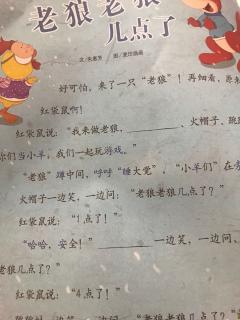 老狼老狼
几点了
文/朱惠芳 图/麦仕插画
好可怕，来了一只“老狼”！再细看，原来
红袋鼠啊！
红袋鼠说：“我来做老狼，________、火帽子、跳跳
你们当小羊，我们一起玩游戏。”
“老狼”蹲中间，呼呼“睡大觉”，“小羊们”在旁
火帽子一边笑，一边问：“老狼老狼几点了？”
红袋鼠说：“1点了！”
“哈哈，安全！”________一边笑，一边问：
老狼几点了？”
红袋鼠说：“4点了！”
跳跳蛙一边笑，一边问：“老狼老狼几点了？